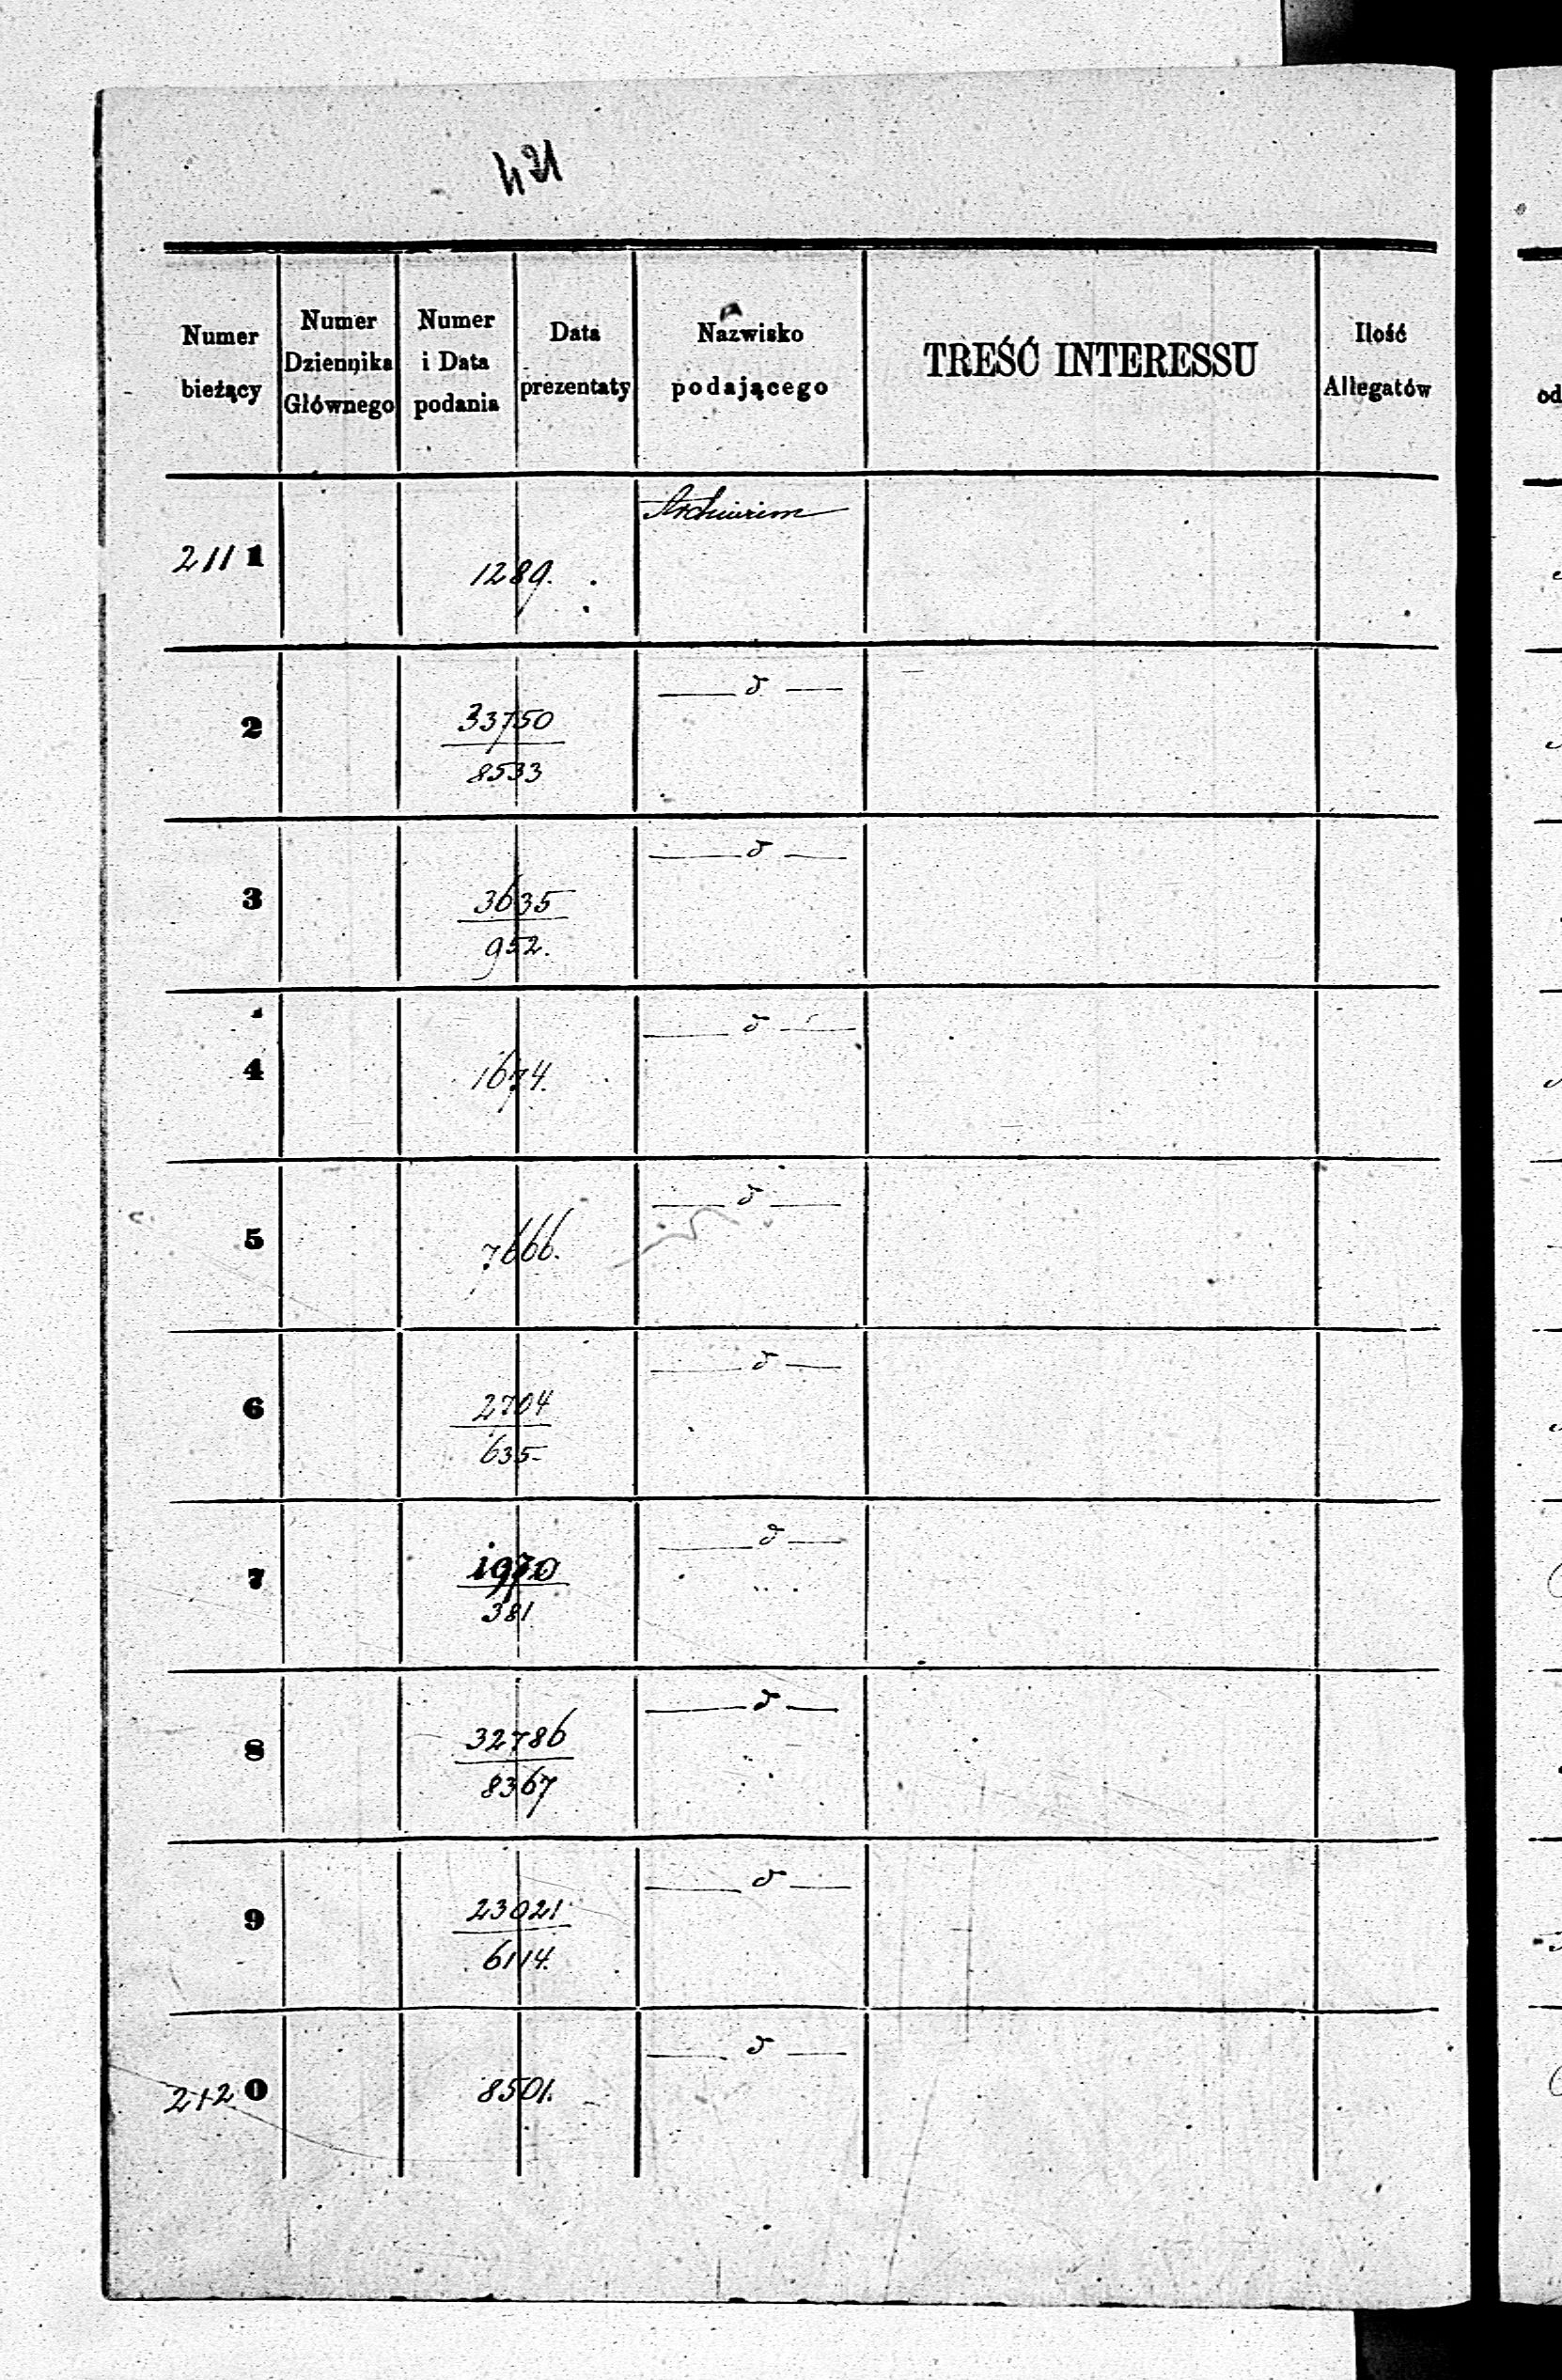 Numer bieżący Numer Dziennika Głównego Numer i Data podania Data prezentaty Nazwisko podającego TREŚĆ INTERESSU Ilość Allegatów
Archiwum
2111 1289.
2 33750 d
8533
3 3635 d
952.
4 1674. d
5 7666. d
6 2704 d
635
7 1970 d
381
8 32786 d
8367
9 23021 d
6114.
2120 8501. d